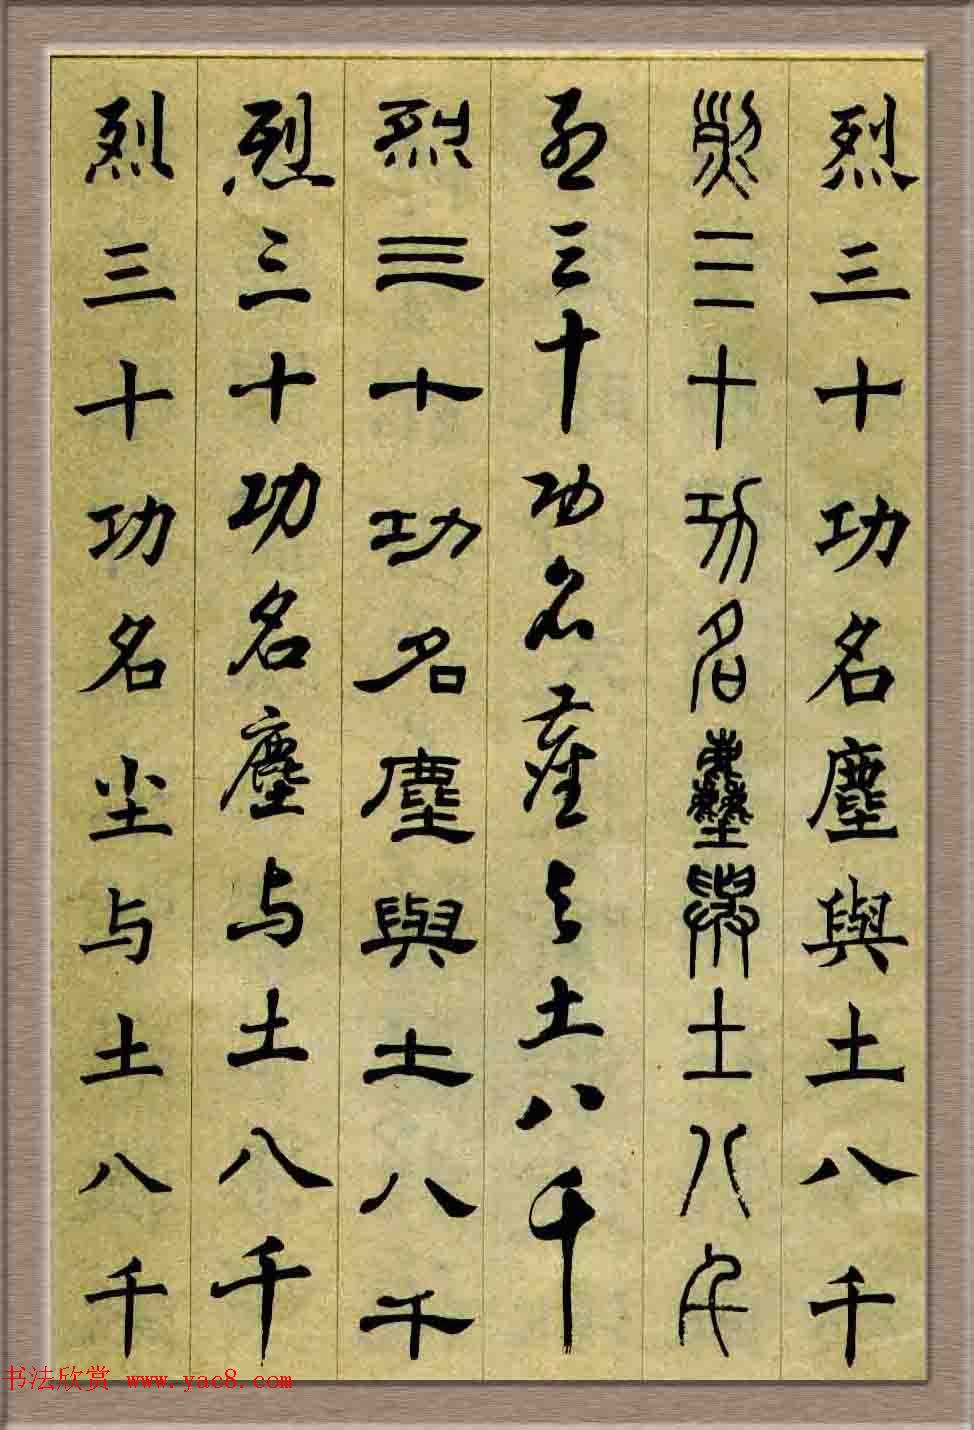 烈三十功名塵與土八千
烈三十功名塵與土八千
烈三十功名塵与土八千
烈三十功名塵與土八千
烈三十功名塵与土八千
烈三十功名尘与土八千
书法欣赏 www.yac8.com